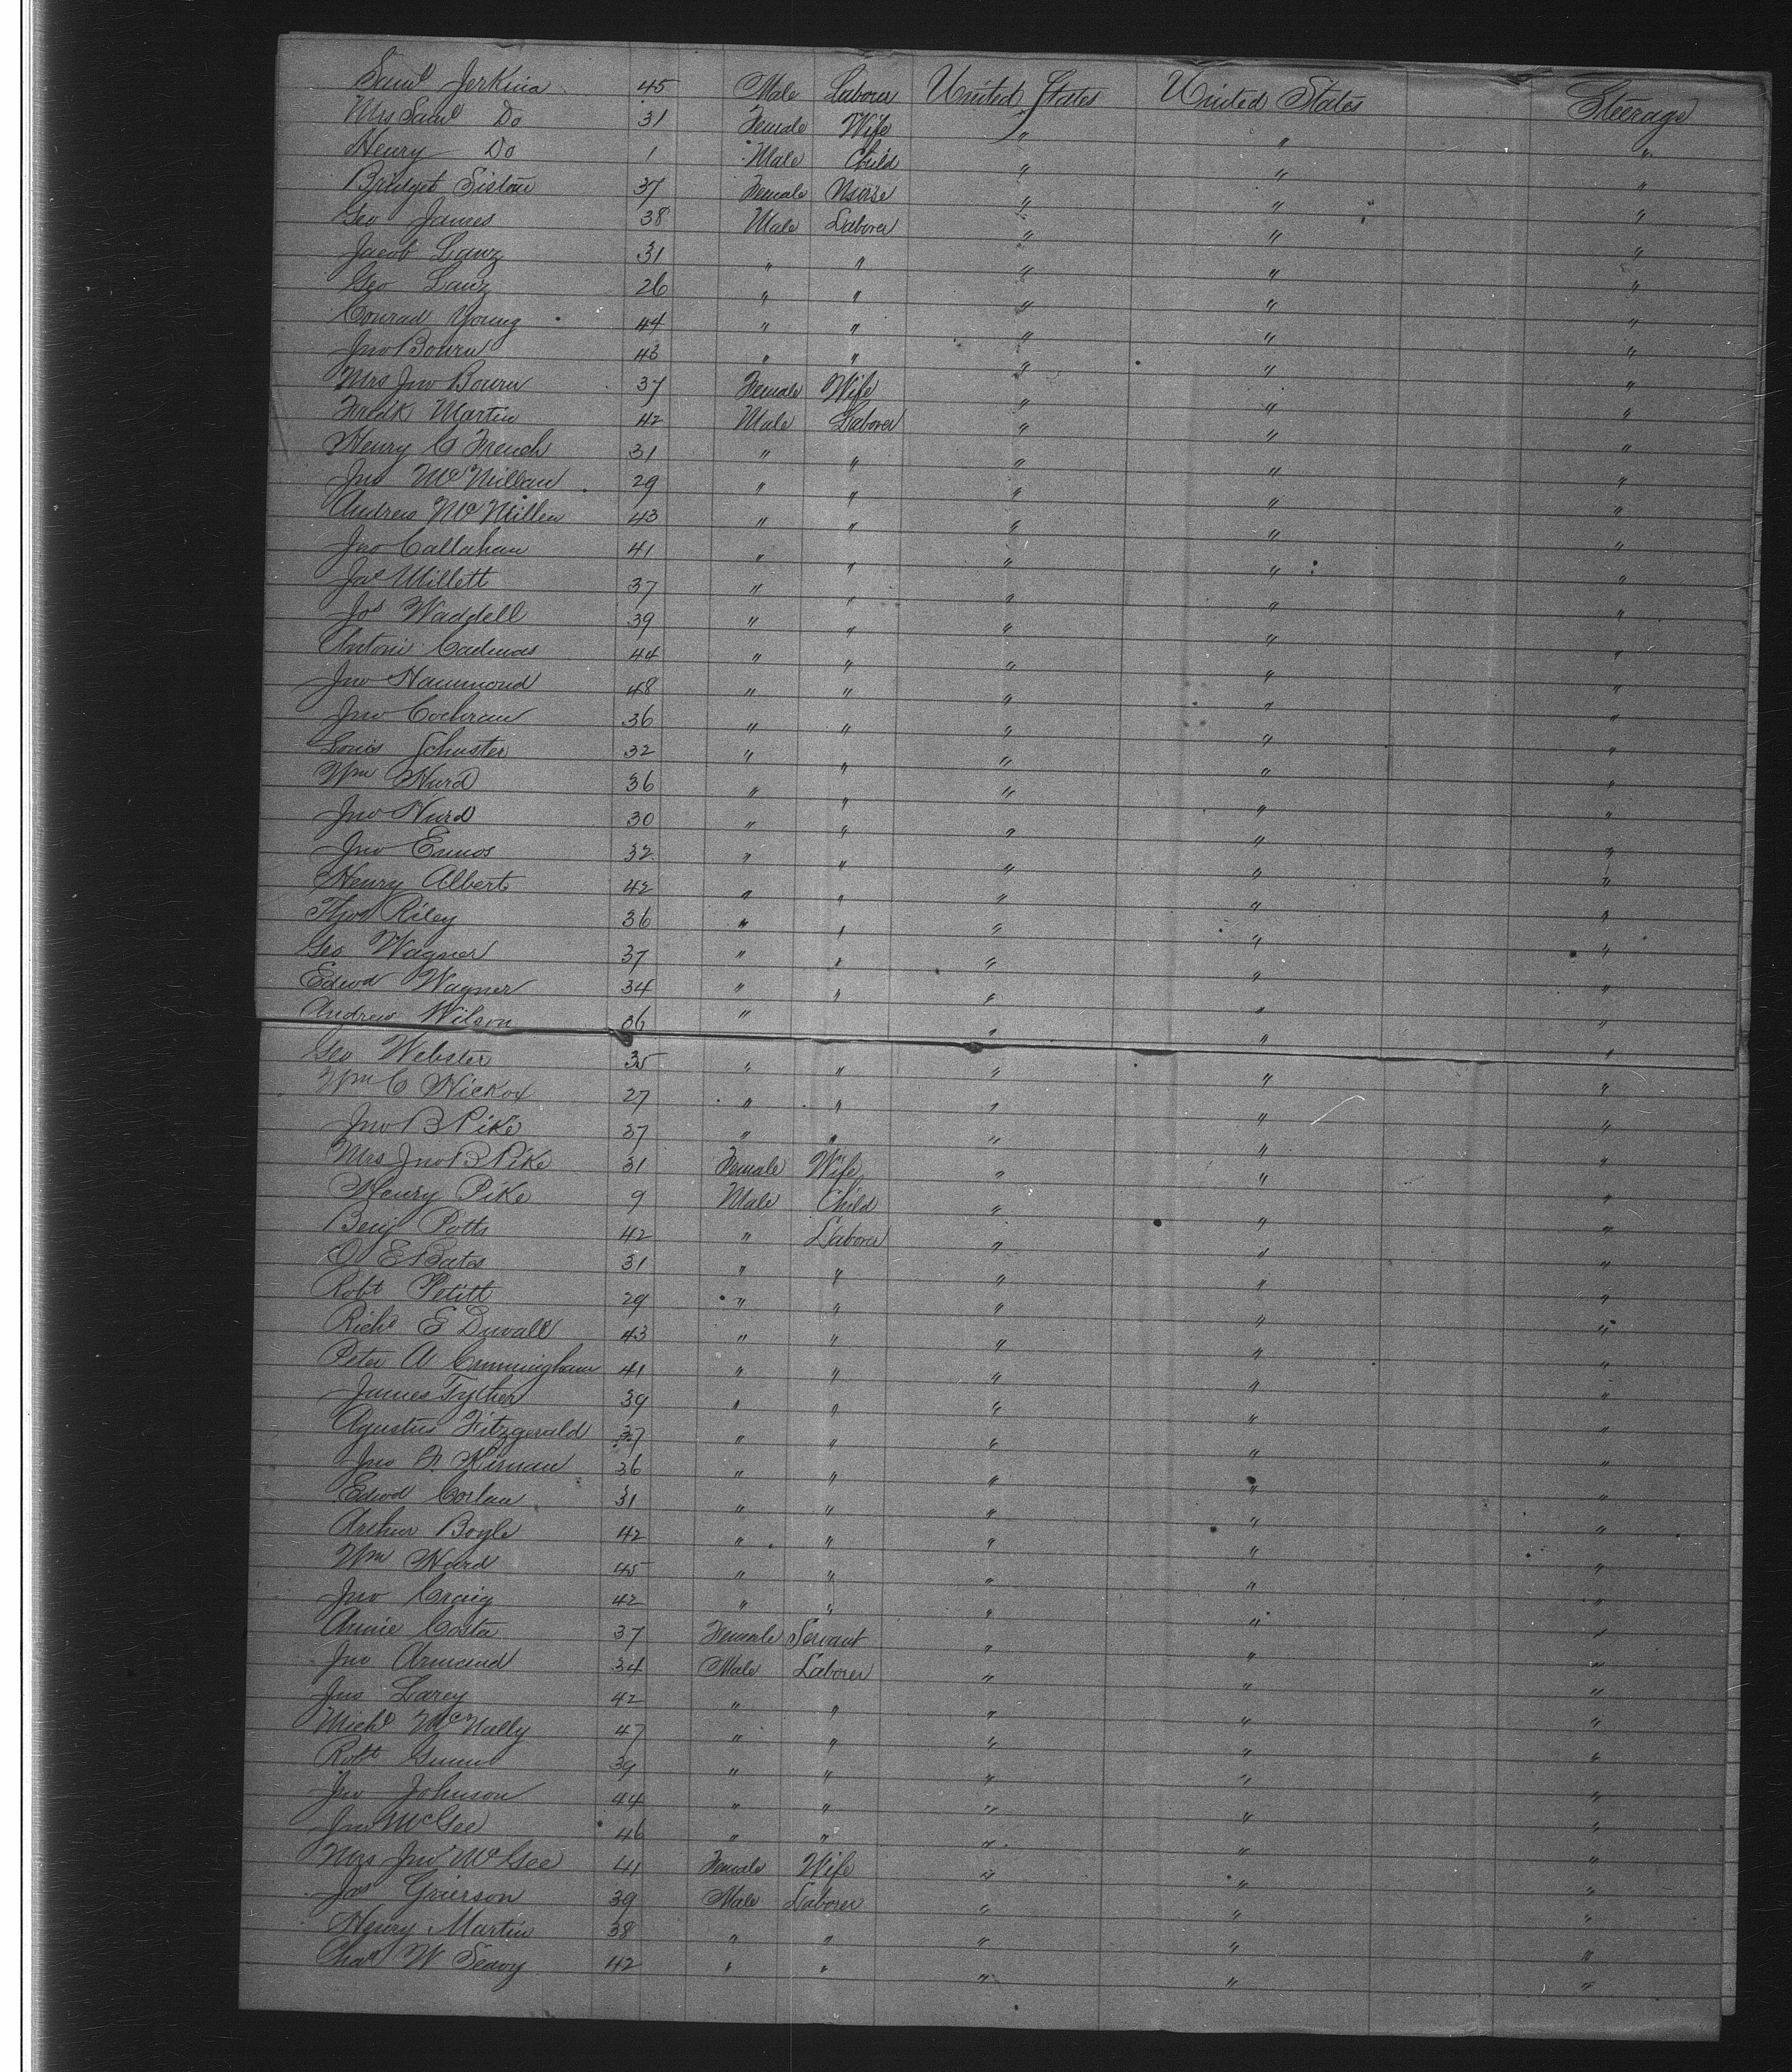 Saml Jerkins 45 Male Laborer United States United States Steerage
Mrs Saml Do 31 Female Wife " " "
Henry Do 1 Male Child " " "
Bridget Sistare 37 Female Nurse " " "
Geo James 38 Male Laborer " " "
Jacob Lanz 31 " " " " "
Geo Lanz 26 " " " " "
Conrad Young 44 " " " " "
Jno Bourn 43 " " " " "
Mrs Jno Bourn 37 Female Wife " " "
Fredk Martin 42 Male Laborer " " "
Henry C French 31 " " " " "
Jno McMillan 29 " " " " "
Andrew McMillen 43 " " " " "
Jno Callahan 41 " " " " "
Jas Millett 37 " " " " "
Jos Waddell 39 " " " " "
Antoni Cadenas 44 " " " " "
Jno Hammond 48 " " " " "
Jno Cochran 36 " " " " "
Louis Schuster 32 " " " " "
Wm Hurd 36 " " " " "
Jno Hurd 30 " " " " "
Jno Ennos 32 " " " " "
Henry Albert 42 " " " " "
Thos Riley 36 " " " " "
Geo Wagner 37 " " " " "
Edwd Wagner 34 " " " " "
Andrew Wilson 36 " " " "
Geo Webster 35 " " " " "
Wm C Hickox 27 " " " " "
Jno B Pike 37 " " " " "
Mrs Jno B Pike 31 Female Wife " " "
Henry Pike 9 Male Child " " "
Benj Potts 42 " Laborer " " "
O E Bates 31 " " " " "
Robt Petitt 29 " " " " "
Richd E Duvall 43 " " " " "
Peter A Cunningham 41 " " " " "
James Tyther 39 " " " " "
Agustus Fitzgerald 37 " " " " "
Jno F. Kirnan 36 " " " " "
Edwd Corlan 31 " " " " "
Arthur Boyle 42 " " " " "
Wm Hard 45 " " " " "
Jno Craig 42 " " " " "
Annie Costa 37 Female Servant " " "
Jno Armand 34 Male Laborer " " "
Jno Larey 42 " " " " "
Michl McNally 47 " " " " "
Robt Gunn 39 " " " " "
Jno Johnson 44 " " " " "
Jno McGee 46 " " " " "
Mrs Jno McGee 41 Female Wife " " "
Jas Grierson 39 Male Laborer " " "
Henry Martin 38 " " " " "
Chas W Seavy 42 " " " " "